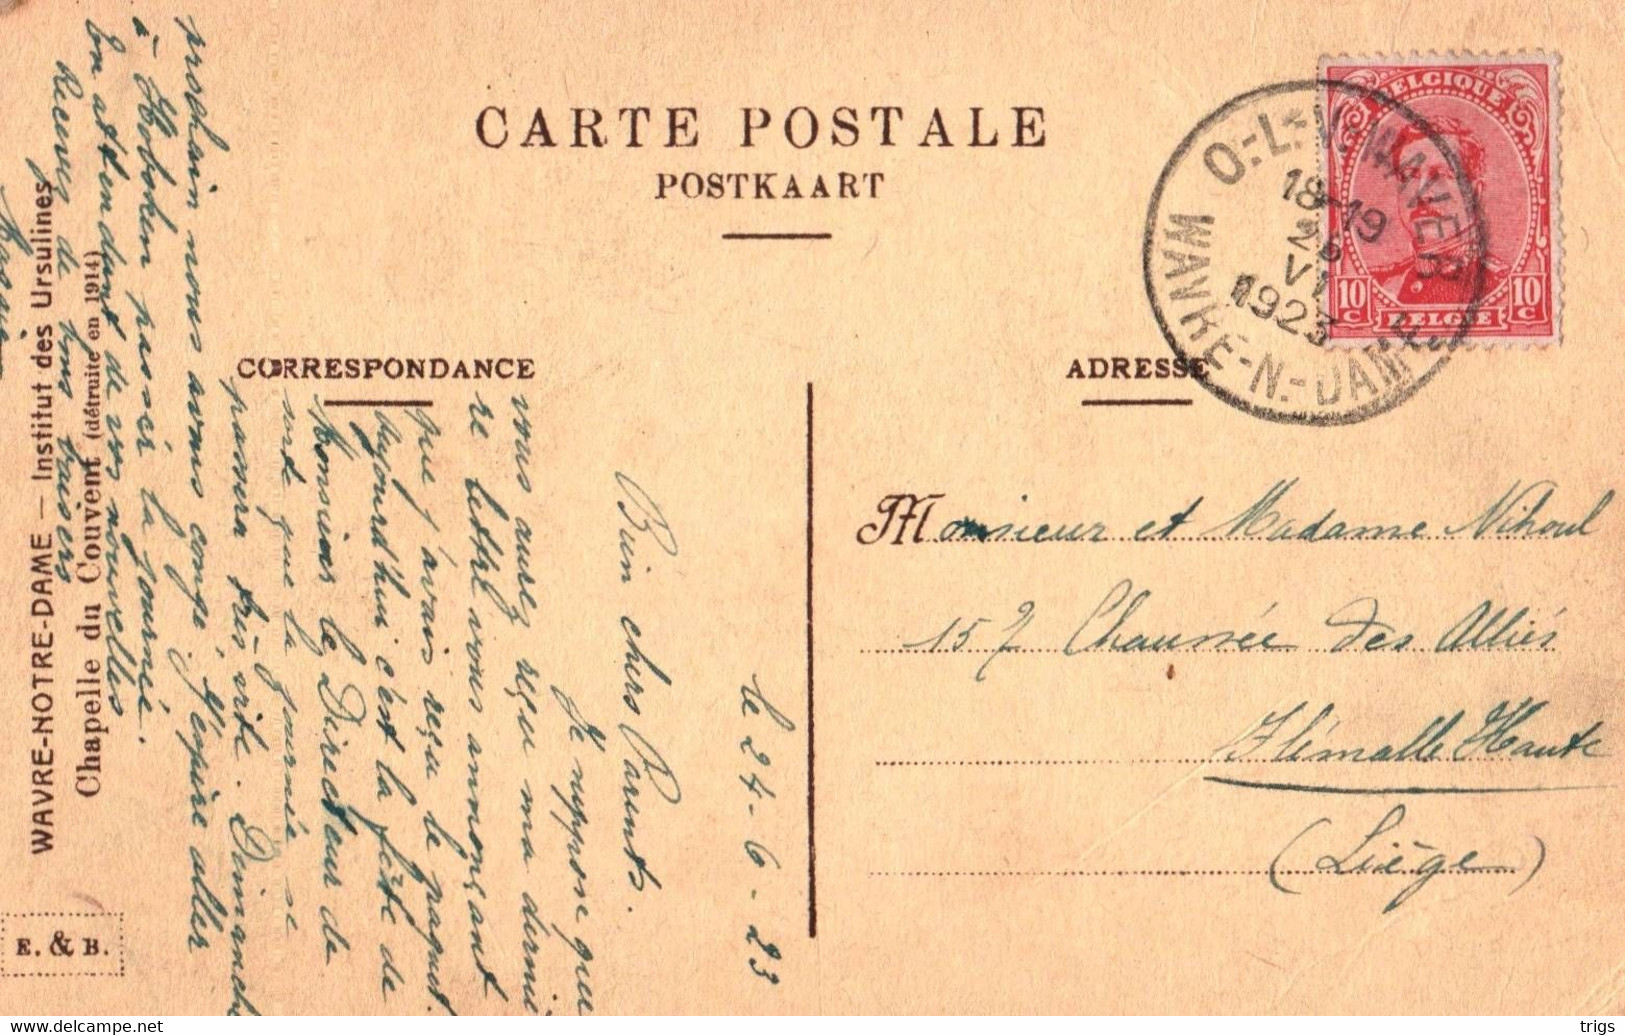 CARTE POSTALE
POSTKAART
CORRESPONDANCE
ADRESSE
BELGIQUE
10 C
10 C
BELGIË
O.-L.-V.-WAVER
18-19
VI
1923
WAVRE-N.-DAME
le 24-6-23
Bien chers Parents.
Je suppose que
vous aurez reçu ma derniè
re lettre vous annonçant
que j'avais reçu le paquet.
Aujourd'hui c'est la fête de
Monsieur le Directeur de
sorte que la journée se
passera très vite. Dimanche
prochain nous avons congé j'espère aller
à Hoboken passer la journée.
En attendant de vos nouvelles
Recevez de bons baisers
Monsieur et Madame Nihoul
157 Chaussée des Alliés
Flémalle Haute
(Liège)
WAVRE-NOTRE-DAME — Institut des Ursulines
Chapelle du Couvent (détruite en 1914)
E. & B.
https://www.delcampe.net
trigs